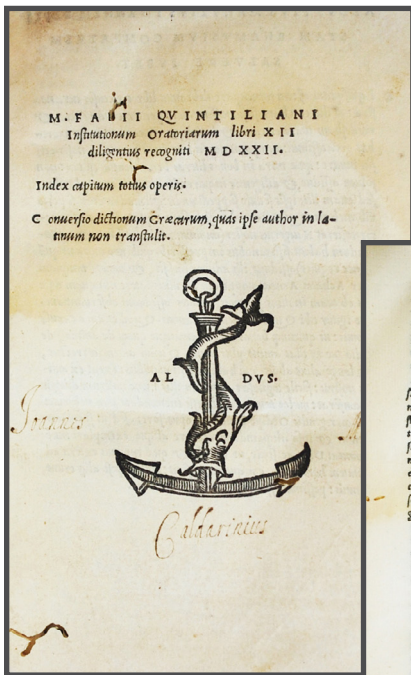 M. FABII QVINTILIANI
Institutionum Oratoriarum libri XII
diligentius recogniti M D XXII.
Index capitum totius operis.
Conuersio dictionum Græcarum, quas ipse author in la-
tinum non transtulit.
AL DVS.
Ioannes
Caldarinius